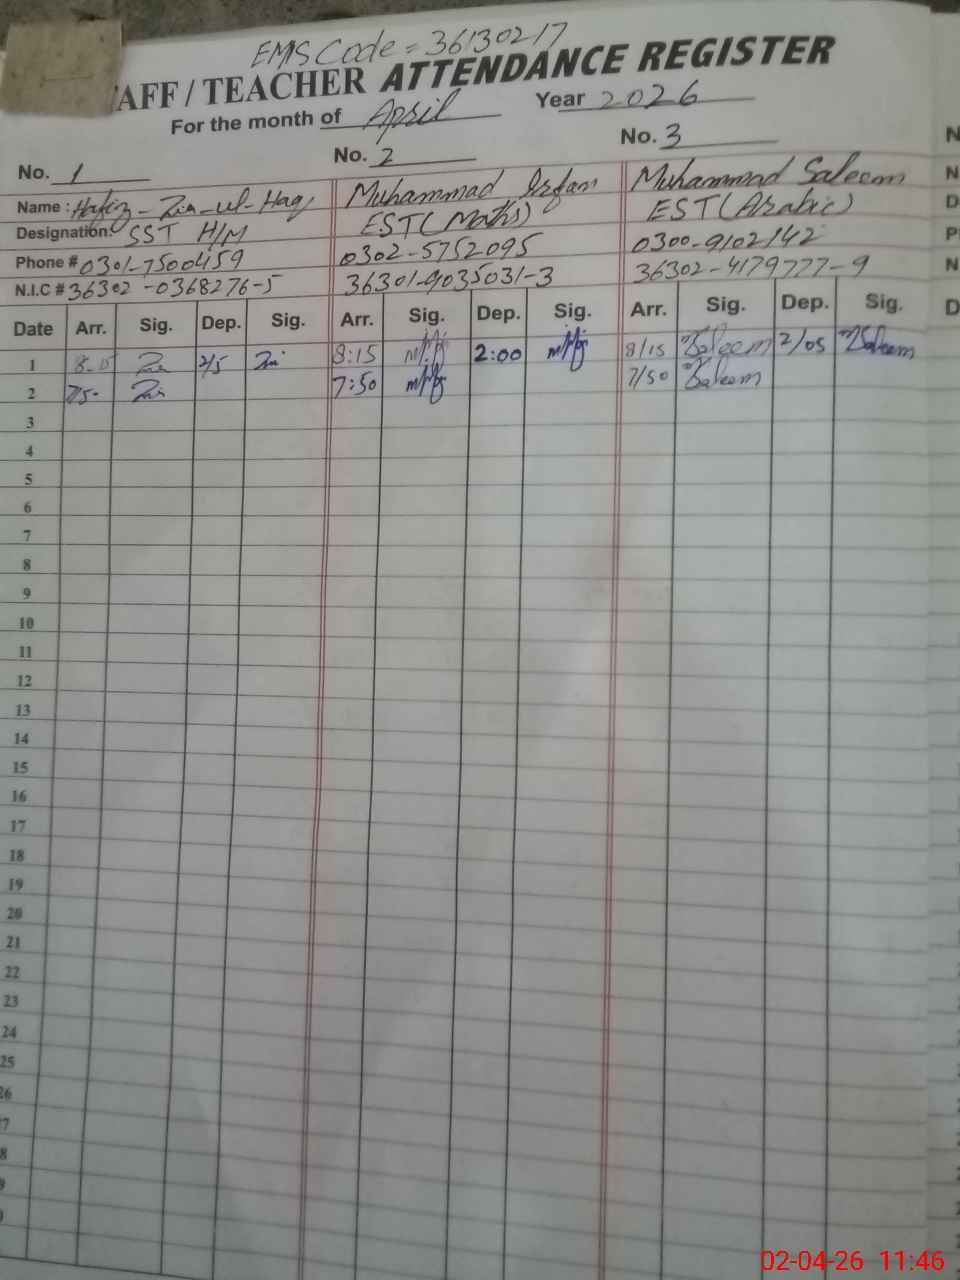 EMS Code = 36130217
AFF / TEACHER ATTENDANCE REGISTER
For the month of April Year 2026
No. 1 No. 2 No. 3
Name : Hafiz-Zia-ul-Haq Muhammad Irfan Muhammad Saleem
Designation: SST H/M EST (Maths) EST (Arabic)
Phone # 0301-7500459 0302-5752095 0300-9102142
N.I.C # 36302-0368276-5 36301-9035031-3 36302-4179777-9
Date Arr. Sig. Dep. Sig. Arr. Sig. Dep. Sig. Arr. Sig. Dep. Sig.
1 8-15 Zia 2/5 Zia 8:15 2:00 8/15 Saleem 2/05 Saleem
2 7/50 Zia 7:50 7/50 Saleem
3
4
5
6
7
8
9
10
11
12
13
14
15
16
17
18
19
20
21
22
23
24
25
26
7
8
9
0
N
N
D
P
N
D
02-04-26 11:46